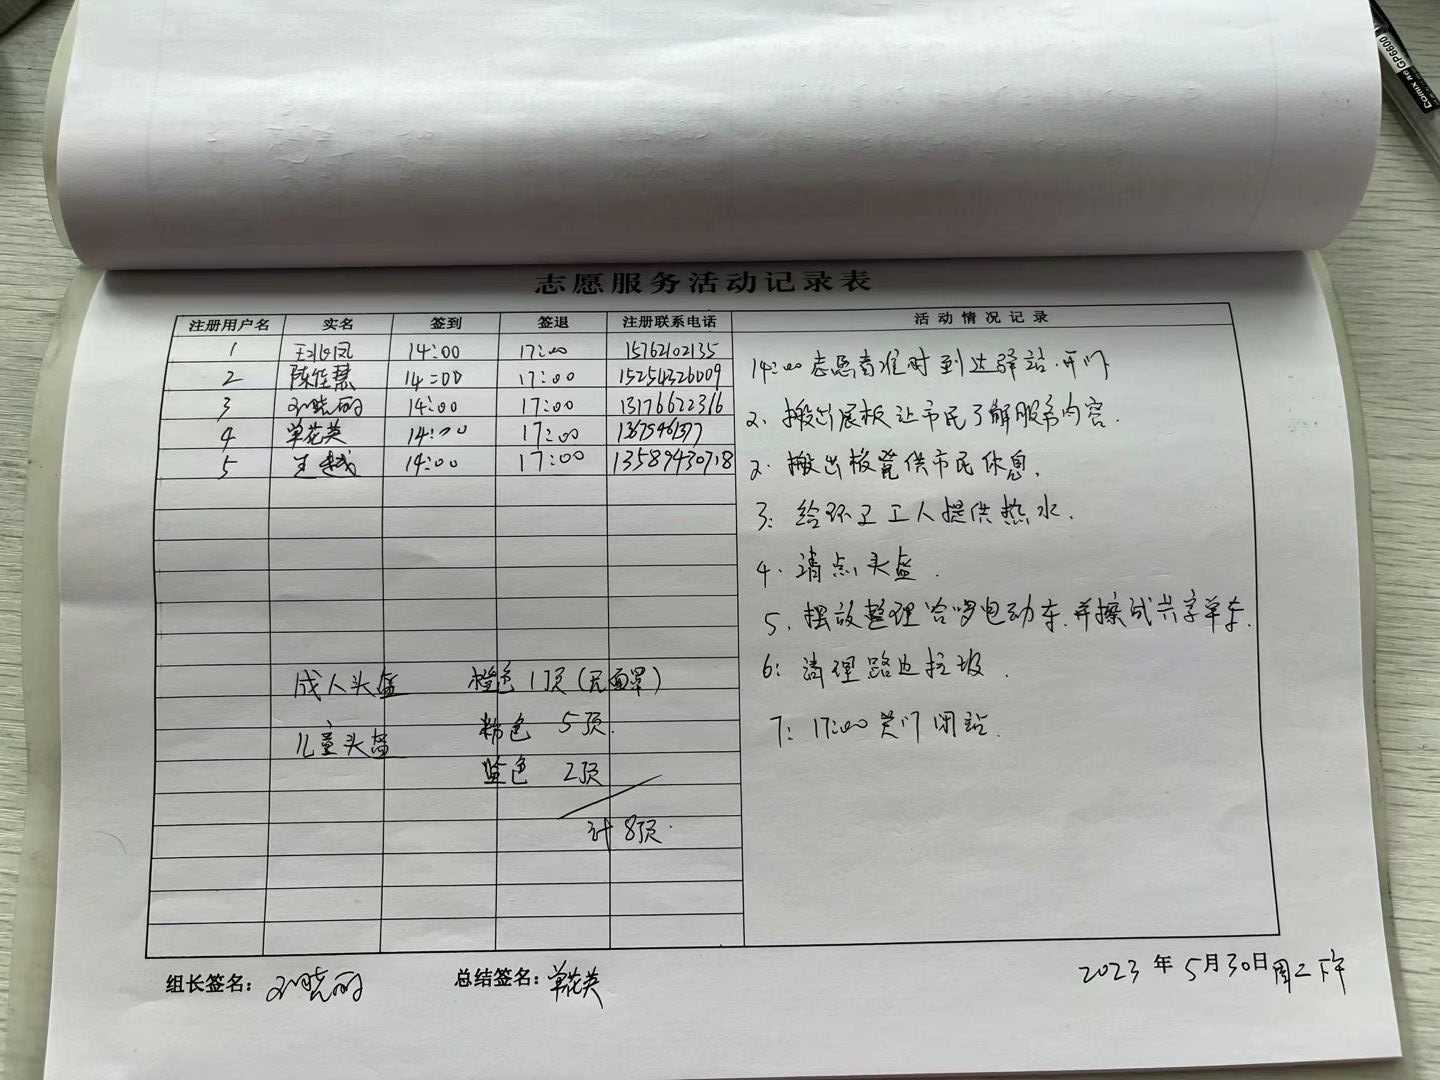 志愿服务活动记录表
注册用户名 实名 签到 签退 注册联系电话 活动情况记录
1 14:00 17:00 15762102135
2 陈佳慧 14:00 17:00 15254326009
3 刘晓丽 14:00 17:00 13176622316
4 单花英 14:00 17:00
5 王越 14:00 17:00 13589430718
14:00志愿者准时到达驿站.开门
2、搬出展板让市民了解服务内容.
2.搬出板凳供市民休息.
3:给环卫工人提供热水.
4.清点头盔.
5.摆放整理哈啰电动车.并擦试共享单车.
6:清理路边垃圾.
7:17:00关门闭站.
成人头盔 橙色1顶(无面罩)
粉色 5顶.
儿童头盔
蓝色 2顶
计8顶.
组长签名:刘晓丽 总结签名:单花英 2023年5月30日周二下午
GP6600
Comix